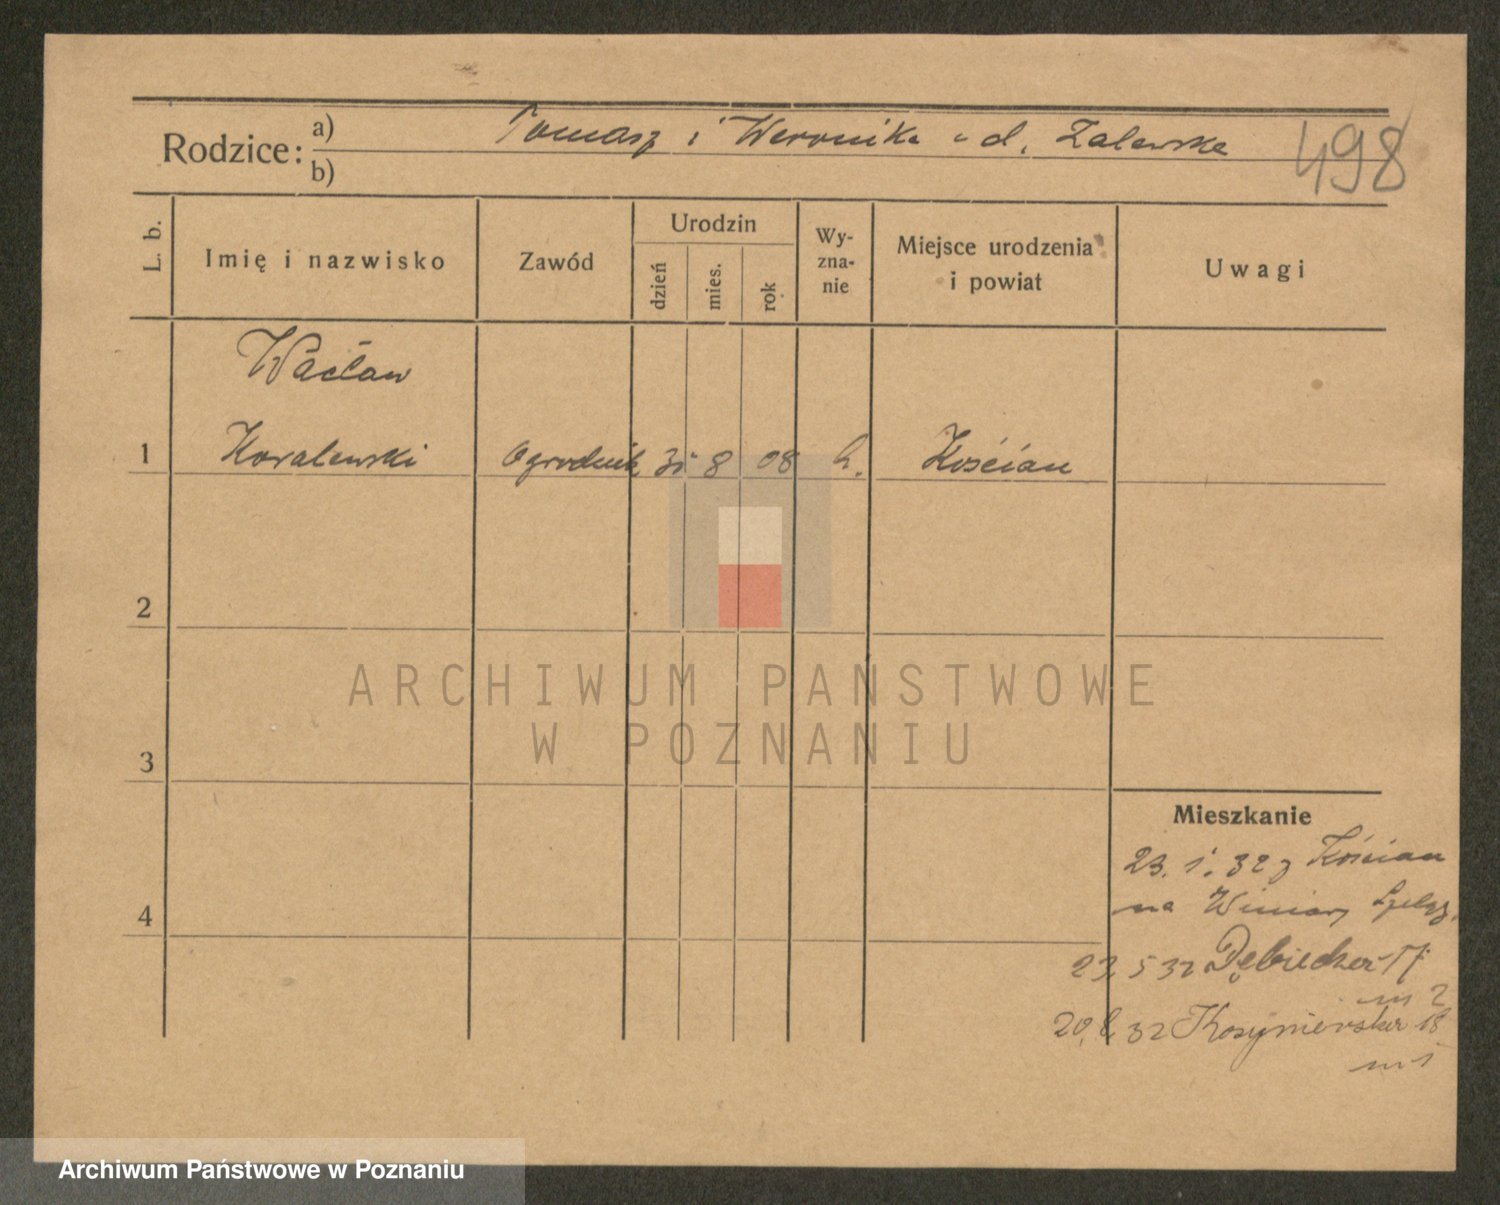 Rodzice: a) Tomasz i Weronika z d. Zalewska
b)
498
L. b. Imię i nazwisko Zawód Urodzin dzień mies. rok Wyznanie Miejsce urodzenia i powiat Uwagi
Wacław
1 Kowalewski Ogrodnik 31 8 08 k. Kościan
2
3
4
Mieszkanie
23. 1. 32 z Kościan
na Winiary
23. 5 32 Dębiecka 17
m 2
20. 8. 32 18
m 1
ARCHIWUM PAŃSTWOWE
W POZNANIU
Archiwum Państwowe w Poznaniu